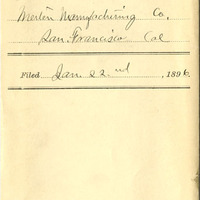 Merlin Manufactiring Co.
San. Francisco Cal
Filed Jan. 22nd, 1896.